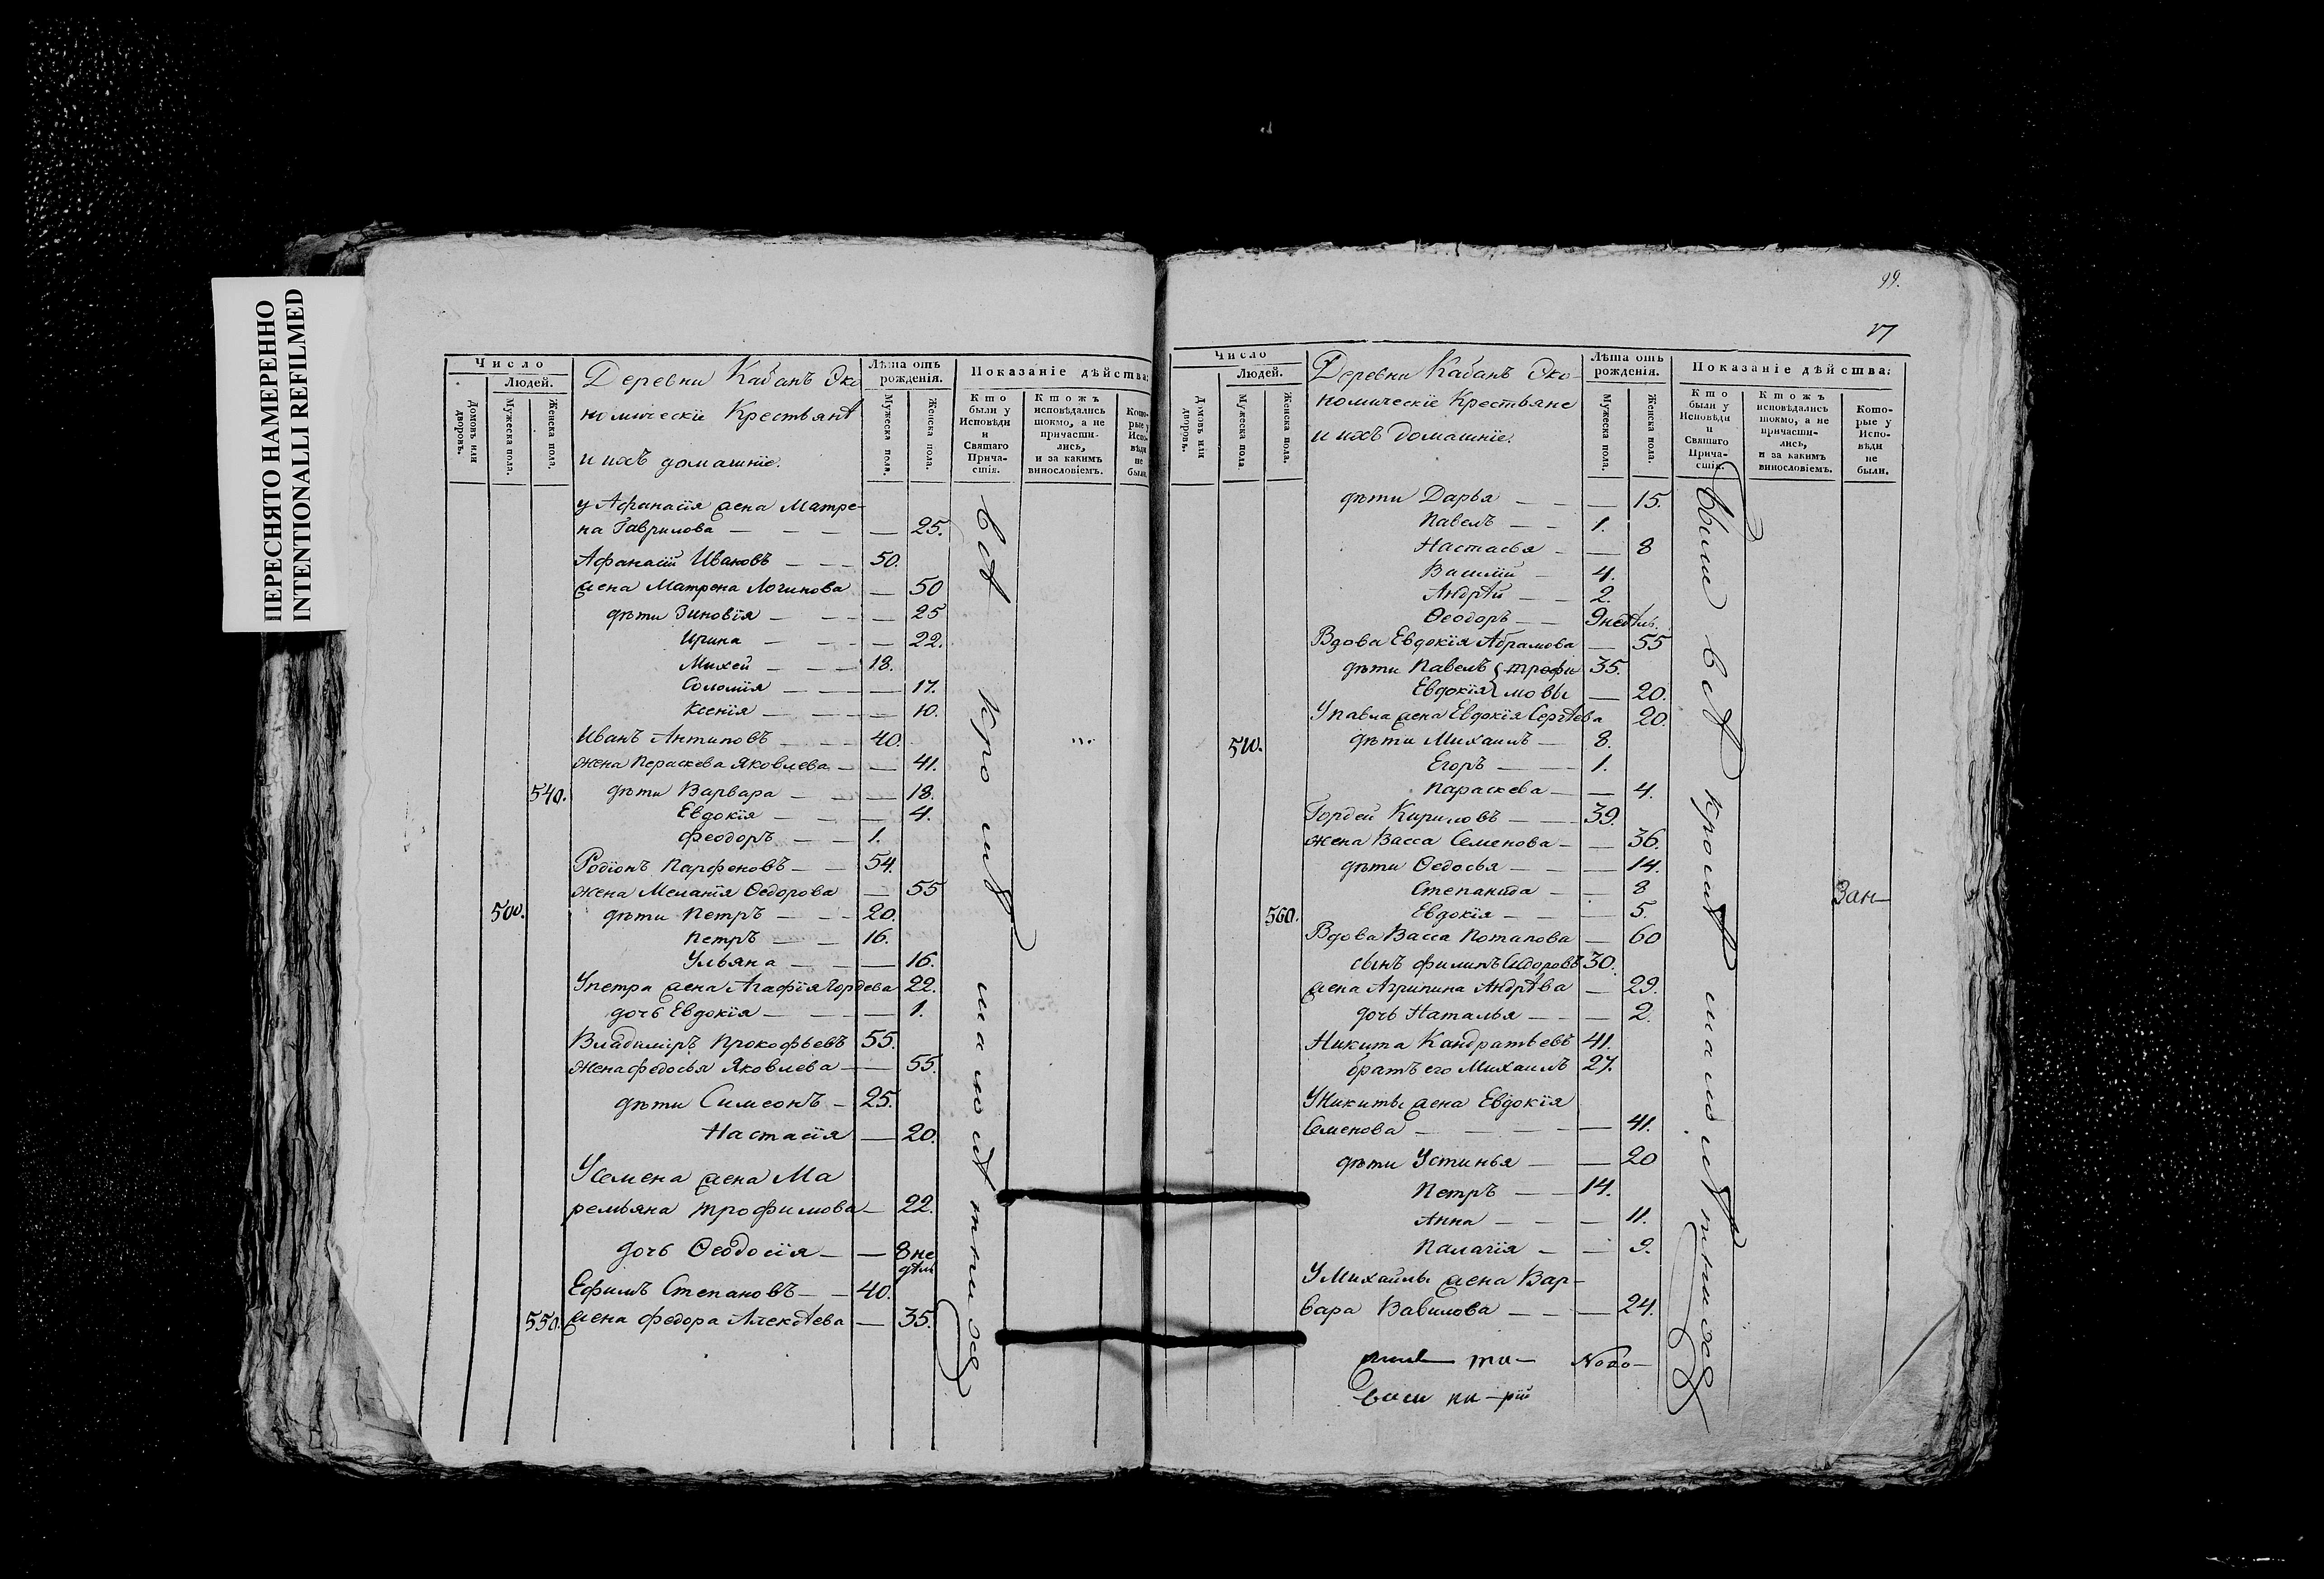 ПЕРЕСНЯТО НАМЕРЕННО
INTENTIONALLI REFILMED
Число
Людей.
Домовъ или дворовъ.
Мужеска пола.
Женска пола.
Деревни Кабанъ Эко
номическіе Крестьянѣ
и ихъ домашніе.
Лѣта отъ рожденія.
Мужеска пола.
Женска пола.
Показаніе дѣйства:
Кто были у Исповѣди и Святаго Прича-стія.
Ктожъ исповѣдались токмо, а не причасти-лись, и за какимъ винословіемъ.
Кото-рые у Испо-вѣди не были.
у Афанасія жена Матре-
на Гаврилова — — — 25.
Афанасій Ивановъ — — 50.
жена Матрена Логинова — 50
дѣти Зиновія — — — 25
Ирина — — — 22.
Михей — — — 18.
Соломія — — — 17.
Ксенія — — — 10.
Иванъ Антиповъ — — 40.
жена Параскева Яковлева — — 41.
540. дѣти Варвара — — — 18.
Евдокія — — — 4.
Феодоръ — — 1.
Родіонъ Парфеновъ — — 54.
жена Меланія Ѳедорова — 55
500. дѣти Петръ — — 20.
Петръ — — 16.
Ульяна — — — 16.
У петра жена Агафія Гордева 22.
дочь Евдокія — — — 1.
Владиміръ Прокофьевъ 55.
жена федосья Яковлева — — 55.
дѣти Симеонъ — 25.
Настасія — 20.
У Семена жена Ма
ремьяна трофимова — 22.
дочь Ѳеодосія — — 8 не
дѣль
Ефимъ Степановъ — — 40.
550. жена федора Алексѣева — 35.
всѣ кромѣ малолѣтнихъ
99.
17
Число
Людей.
Домовъ или дворовъ.
Мужеска пола
Женска пола.
Деревни Кабанъ Эко-
номическіе Крестьяне
и ихъ домашніе.
Лѣта отъ рожденія.
Мужеска пола.
Женска пола.
Показаніе дѣйства:
Кто были у Исповѣди и Святаго Прича-стія.
Ктожъ исповѣдались токмо, а не причасти-лись, и за какимъ винословіемъ.
Кото-рые у Испо-вѣди не были.
дѣти Дарья — — — 15.
Павелъ — — 1.
Настасья — — 8
Василій — 4.
Андрѣй — — 2.
Ѳеодоръ — — 9 недѣль.
Вдова Евдокія Абрамова — 55
дѣти Павелъ } трофи 35.
Евдокія } мовы — 20.
У павла жена Евдокія Сергѣева 20.
510. дѣти Михаилъ — 8.
Егоръ — — 1.
Параскева — — 4.
Гордей Кириловъ — — 39.
жена Васса Семенова — — 36.
дѣти Ѳедосья — — — 14.
Степанида — — 8
560. Евдокія — — — 5.
Вдова Васса Потапова — 60
сынъ филипъ Сидоровъ 30.
жена Агрипина Андрѣва — 29.
дочь Наталья — — — 2.
Никита Кандратьевъ 41.
братъ его Михаилъ 27.
У Никиты жена Евдокія
Семенова — — — — 41.
дѣти Устинья — — 20
Петръ — — 14.
Анна — — — 11.
Палагія — — 9.
У Михайлы жена Вар-
вара Вавилова — — — 24.
были всѣ кромѣ малолѣтнихъ
Зан—